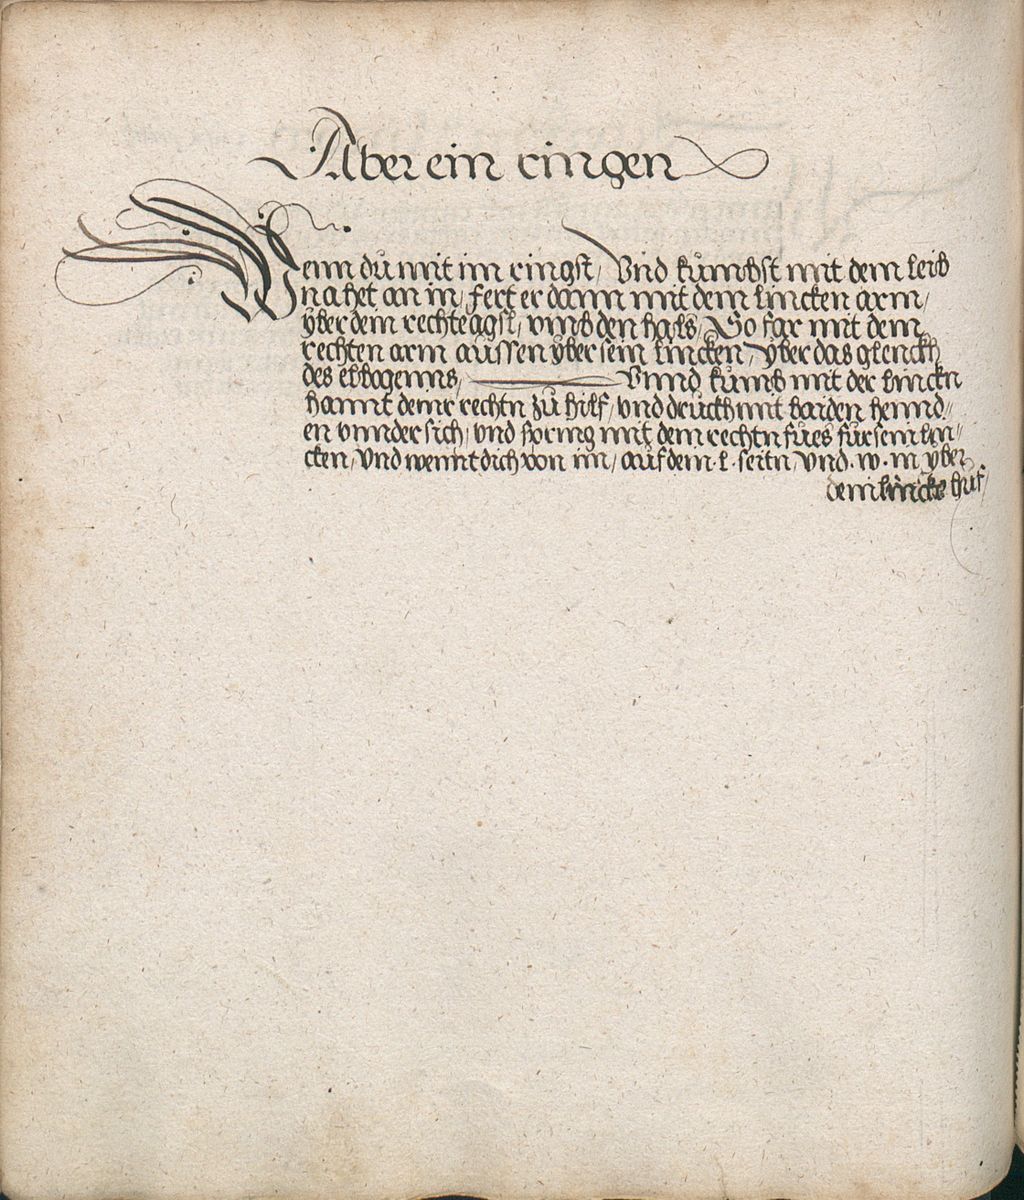 Aber ein ringen
Wenn dů mit im ringst / Vnd kůmbst mit dem leib
nahet an in / fert er dann mit dem lincken arm /
yber dein rechte agsl / vmb den hals / So far mit dem
rechten arm aussen yber sein lincken / yber das glenckh
des elbogenns / Vnnd kůmb mit der linckn
hannt deinr rechtn zů hilf / vnd druckh mit baiden hennd //
en vnnder sich / vnd spring mit dem rechtn fůes fůr sein lin //
cken / vnd wennt dich von im / auf dein . l . seitn / vnd . w . in yber
dein lincke huf /